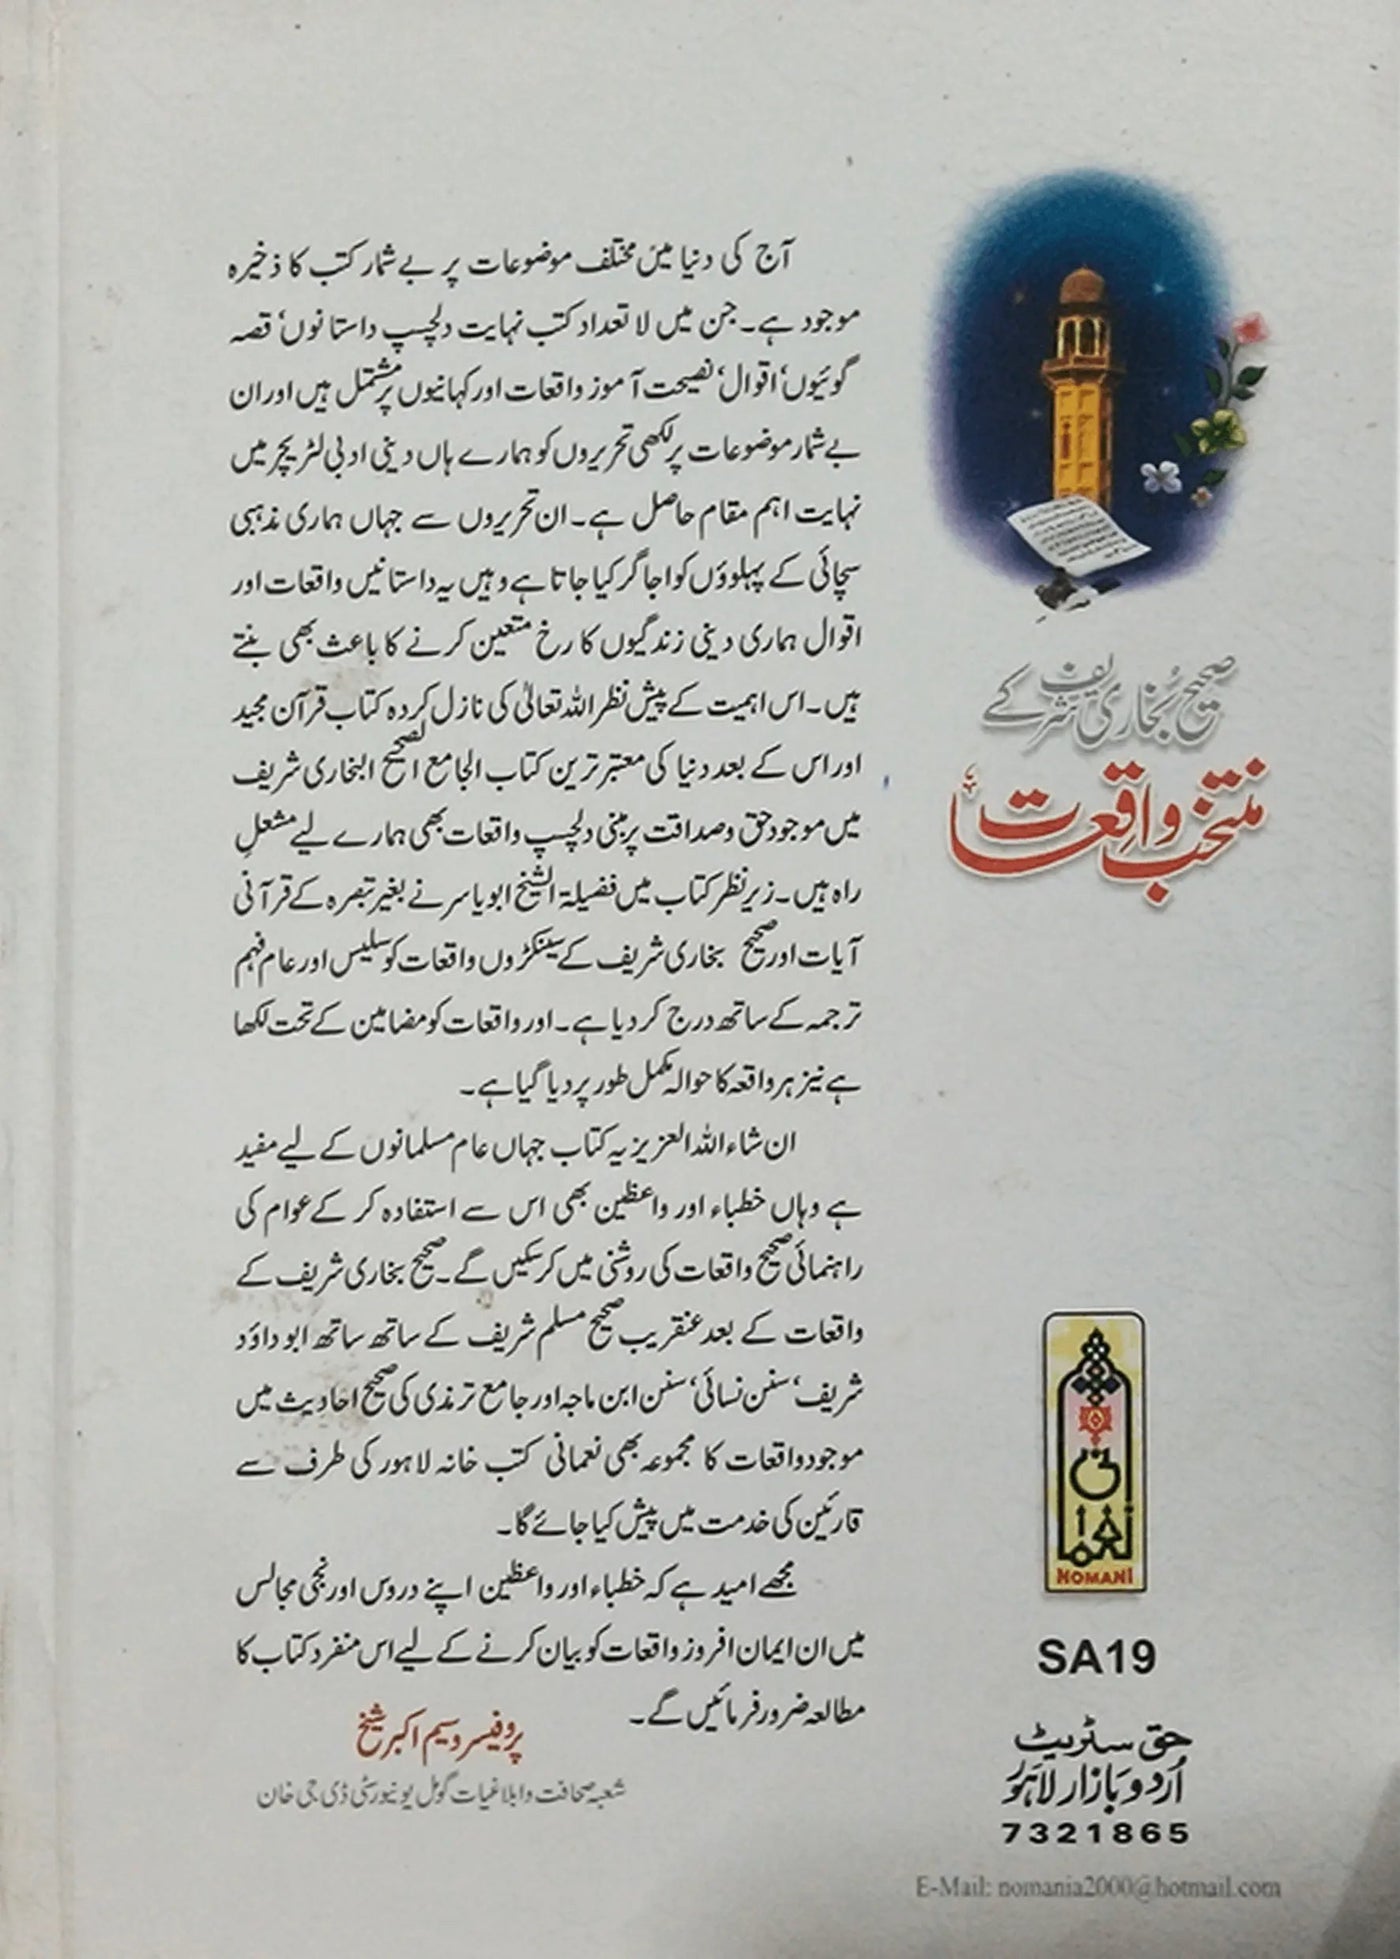 صحیح بخاری شریف کے
منتخب واقعات
آج کی دنیا میں مختلف موضوعات پر بے شمار کتب کا ذخیرہ
موجود ہے۔ جن میں لا تعداد کتب نہایت دلچسپ داستانوں‘ قصہ
گوئیوں‘ اقوال‘ نصیحت آموز واقعات اور کہانیوں پر مشتمل ہیں اور ان
بے شمار موضوعات پر لکھی تحریروں کو ہمارے ہاں دینی ادبی لٹریچر میں
نہایت اہم مقام حاصل ہے۔ ان تحریروں سے جہاں ہماری مذہبی
سچائی کے پہلوؤں کو اجاگر کیا جاتا ہے وہیں یہ داستانیں واقعات اور
اقوال ہماری دینی زندگیوں کا رخ متعین کرنے کا باعث بھی بنتے
ہیں۔ اس اہمیت کے پیش نظر اللہ تعالیٰ کی نازل کردہ کتاب قرآن مجید
اور اس کے بعد دنیا کی معتبر ترین کتاب الجامع الصحیح البخاری شریف
میں موجود حق و صداقت پر مبنی دلچسپ واقعات بھی ہمارے لیے مشعلِ
راہ ہیں۔ زیر نظر کتاب میں فضیلۃ الشیخ ابو یاسر نے بغیر تبصرہ کے قرآنی
آیات اور صحیح بخاری شریف کے سینکڑوں واقعات کو سلیس اور عام فہم
ترجمہ کے ساتھ درج کر دیا ہے۔ اور واقعات کو مضامین کے تحت لکھا
ہے نیز ہر واقعہ کا حوالہ مکمل طور پر دیا گیا ہے۔
ان شاء اللہ العزیز یہ کتاب جہاں عام مسلمانوں کے لیے مفید
ہے وہاں خطباء اور واعظین بھی اس سے استفادہ کر کے عوام کی
راہنمائی صحیح واقعات کی روشنی میں کر سکیں گے۔ صحیح بخاری شریف کے
واقعات کے بعد عنقریب صحیح مسلم شریف کے ساتھ ساتھ ابو داؤد
شریف‘ سنن نسائی‘ سنن ابن ماجہ اور جامع ترمذی کی صحیح احادیث میں
موجود واقعات کا مجموعہ بھی نعمانی کتب خانہ لاہور کی طرف سے
قارئین کی خدمت میں پیش کیا جائے گا۔
مجھے امید ہے کہ خطباء اور واعظین اپنے دروس اور نجی مجالس
میں ان ایمان افروز واقعات کو بیان کرنے کے لیے اس منفرد کتاب کا
مطالعہ ضرور فرمائیں گے۔
پروفیسر وسیم اکبر شیخ
شعبہ صحافت و ابلاغیات گومل یونیورسٹی ڈی جی خان
نعمانی
NOMANI
SA19
حق سٹریٹ
اُردو بازار لاہور
7321865
E-Mail: nomania2000@hotmail.com